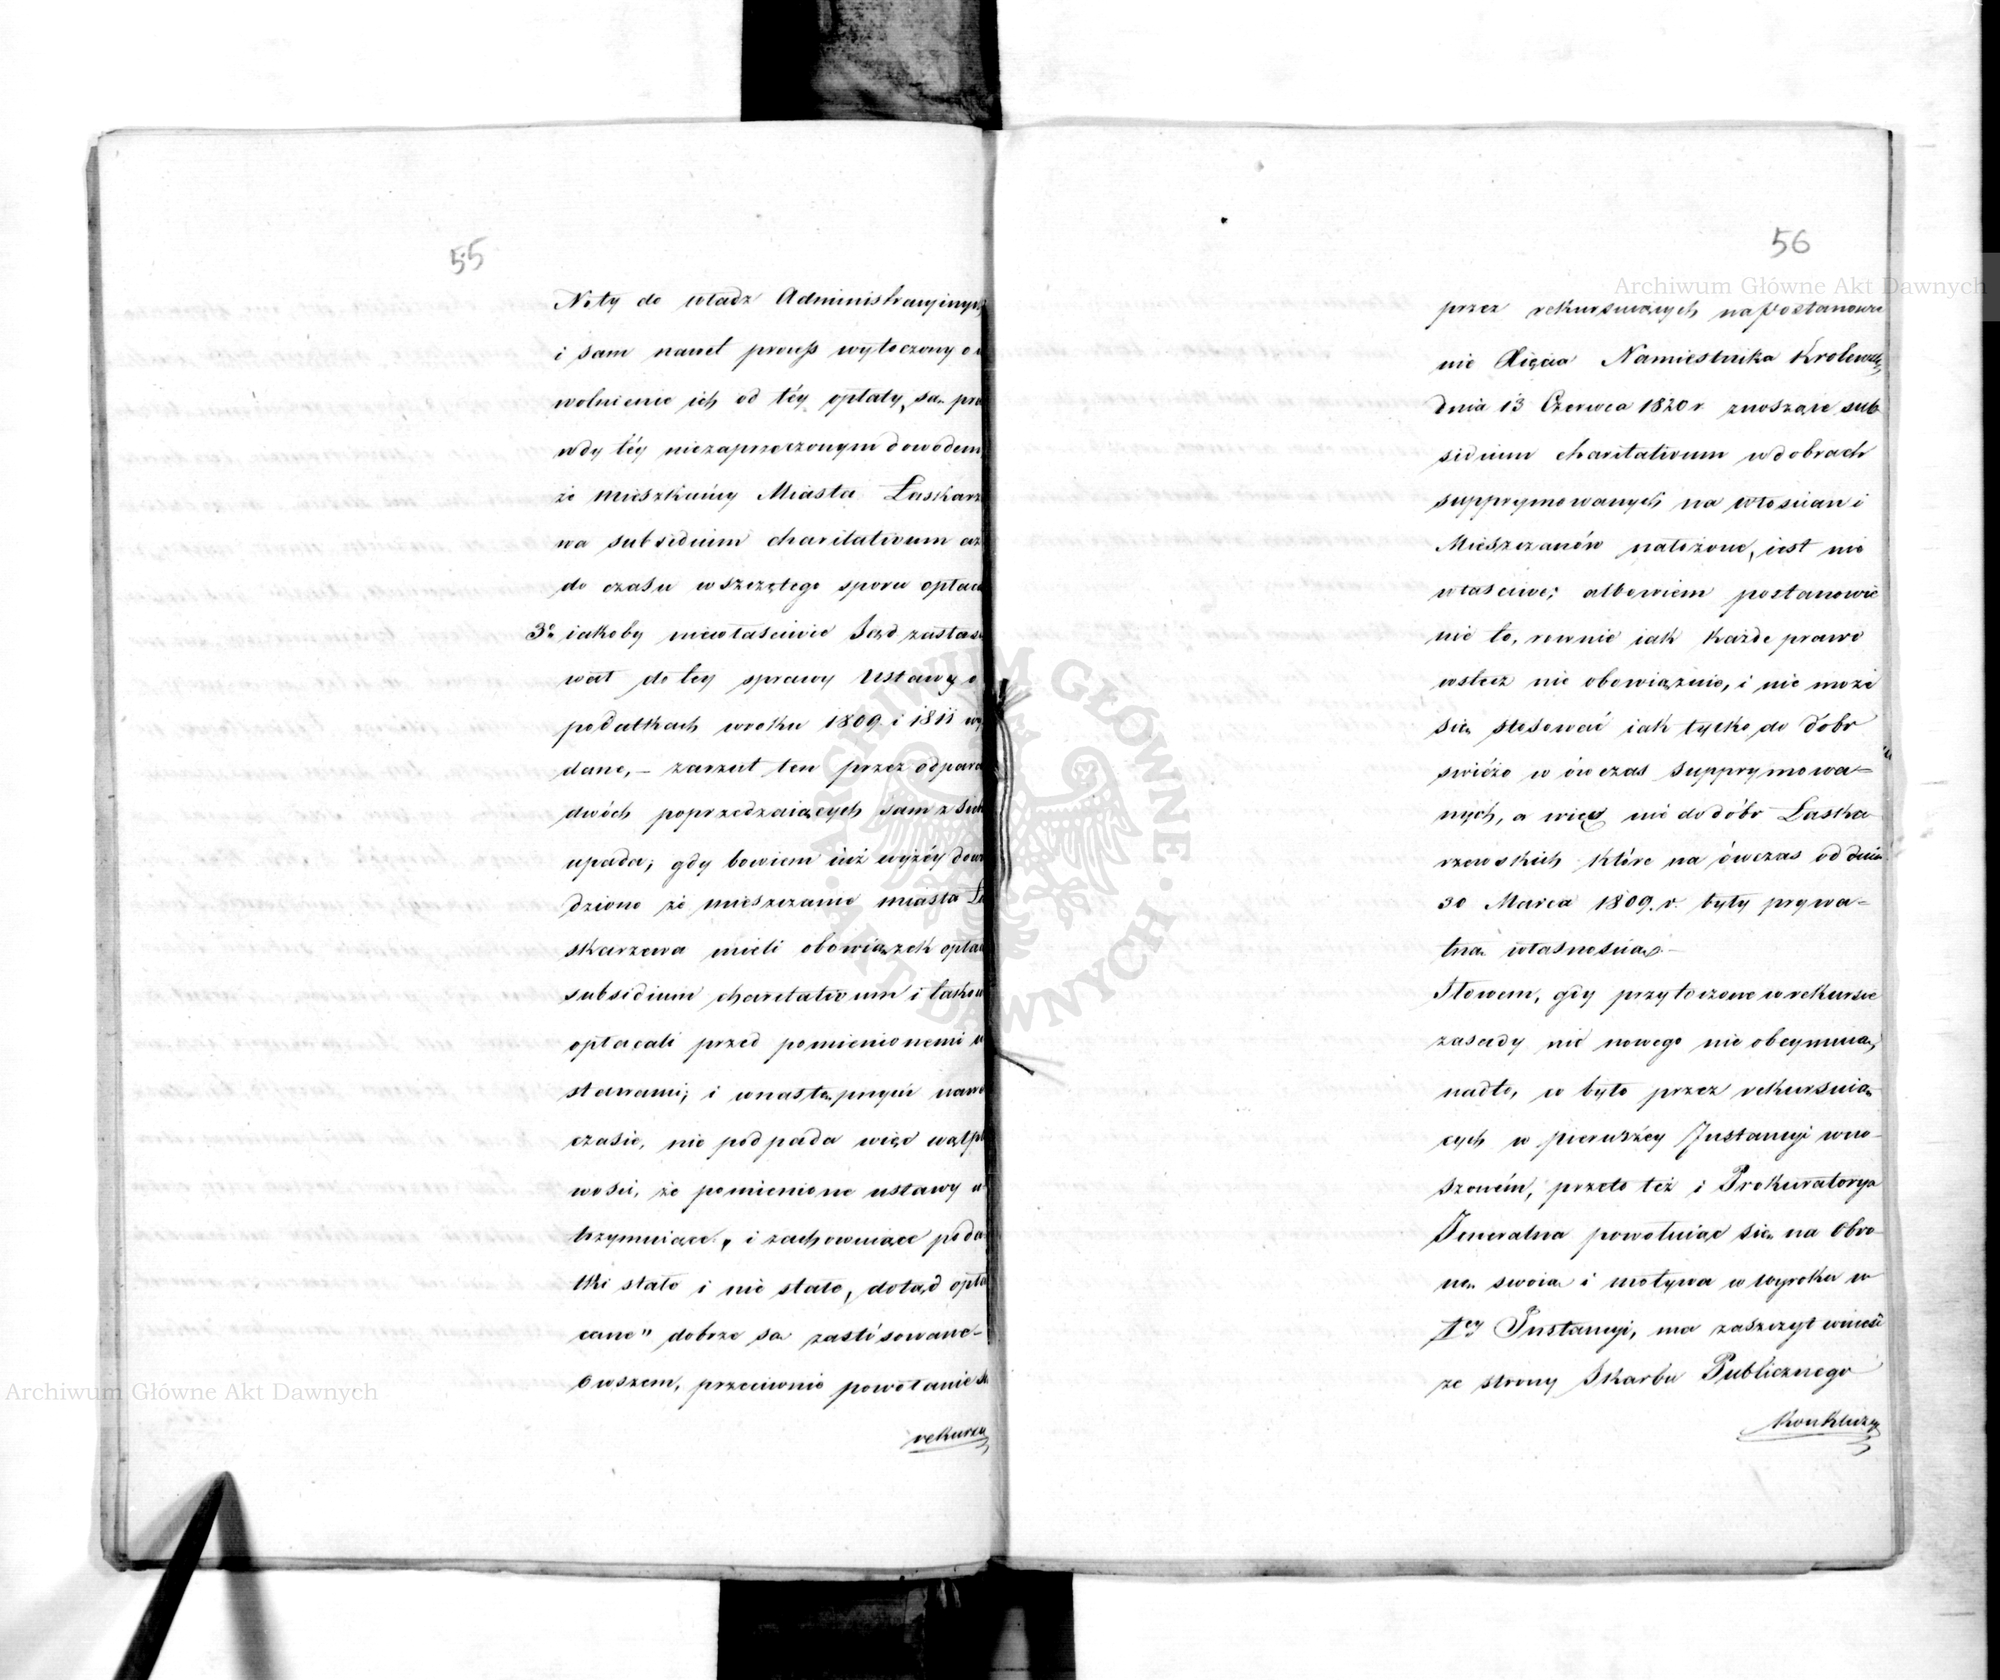 55
Noty do władz Administracyinych
i sam nawet process wytoczony o u
wolnienie ich od téy opłaty, są pra
wdy téy niezaprzeczonym dowodem
że mieszkańcy Miasta Laskarze
wa subsidium charitativum aż
do czasu wszczętego sporu opłaca
3o iakoby niewłaściwie Sąd zastoso
wał do tey sprawy Ustawy o
podatkach wroku 1809 i 1811 wy
dane, – zarzut ten przez odparcie
dwóch poprzedzaiących sam z siebie
upada; gdy bowiem iuż wyżéy dowo
dzione że mieszczanie miasta La
skarzewa mieli obowiązek opłac
subsidium charitativum i takowe
opłacali przed pomienionemi u
stawami; i wnastępnym nawet
czasie, nie podpada więc wątpli
wości, że pomienione ustawy u
trzymuiące „ i zachowuiące poda
tki stałe i nie stałe, dotąd opła
cane" dobrze są zastósowane –
Owszem, przeciwnie powołanie się
rekursu
56
przez rekursuiących na Postanowie
nie Xięcia Namiestnika Królewsk
dnia 13 Czerwca 1820 r. znoszące sub
sidium charitativum wdobrach
supprymowanych na włościan i
Mieszczanów nałożone, iest nie
właściwe; albowiem postanowie
nie to, rownie iak każde prawo
wstecz nie obowiązuie, i nie może
się stosować iak tylko do dóbr
swiéżo w ówczas supprymowa=
nych, a więc nie do dóbr Laska
rzewskich które na ówczas od dnia
30 Marca 1809. r. były prywa=
tną własnością. –
Słowem, gdy przytoczone w rekursie
zasady nic nowego nie obeymuią,
nadto, co było przez rekursuią
cych w pierwszéy Instancyi wno–
szoném, przeto też i Prokuratorya
Jeneralna powołuiąc się na Obro
nę swoią i motywa w wyroku w
Iey Instancyi, ma zaszczyt wnieść
ze strony Skarbu Publicznego
Konkluzyą
Archiwum Główne Akt Dawnych
Archiwum Główne Akt Dawnych
ARCHIWUM GŁÓWNE AKT DAWNYCH